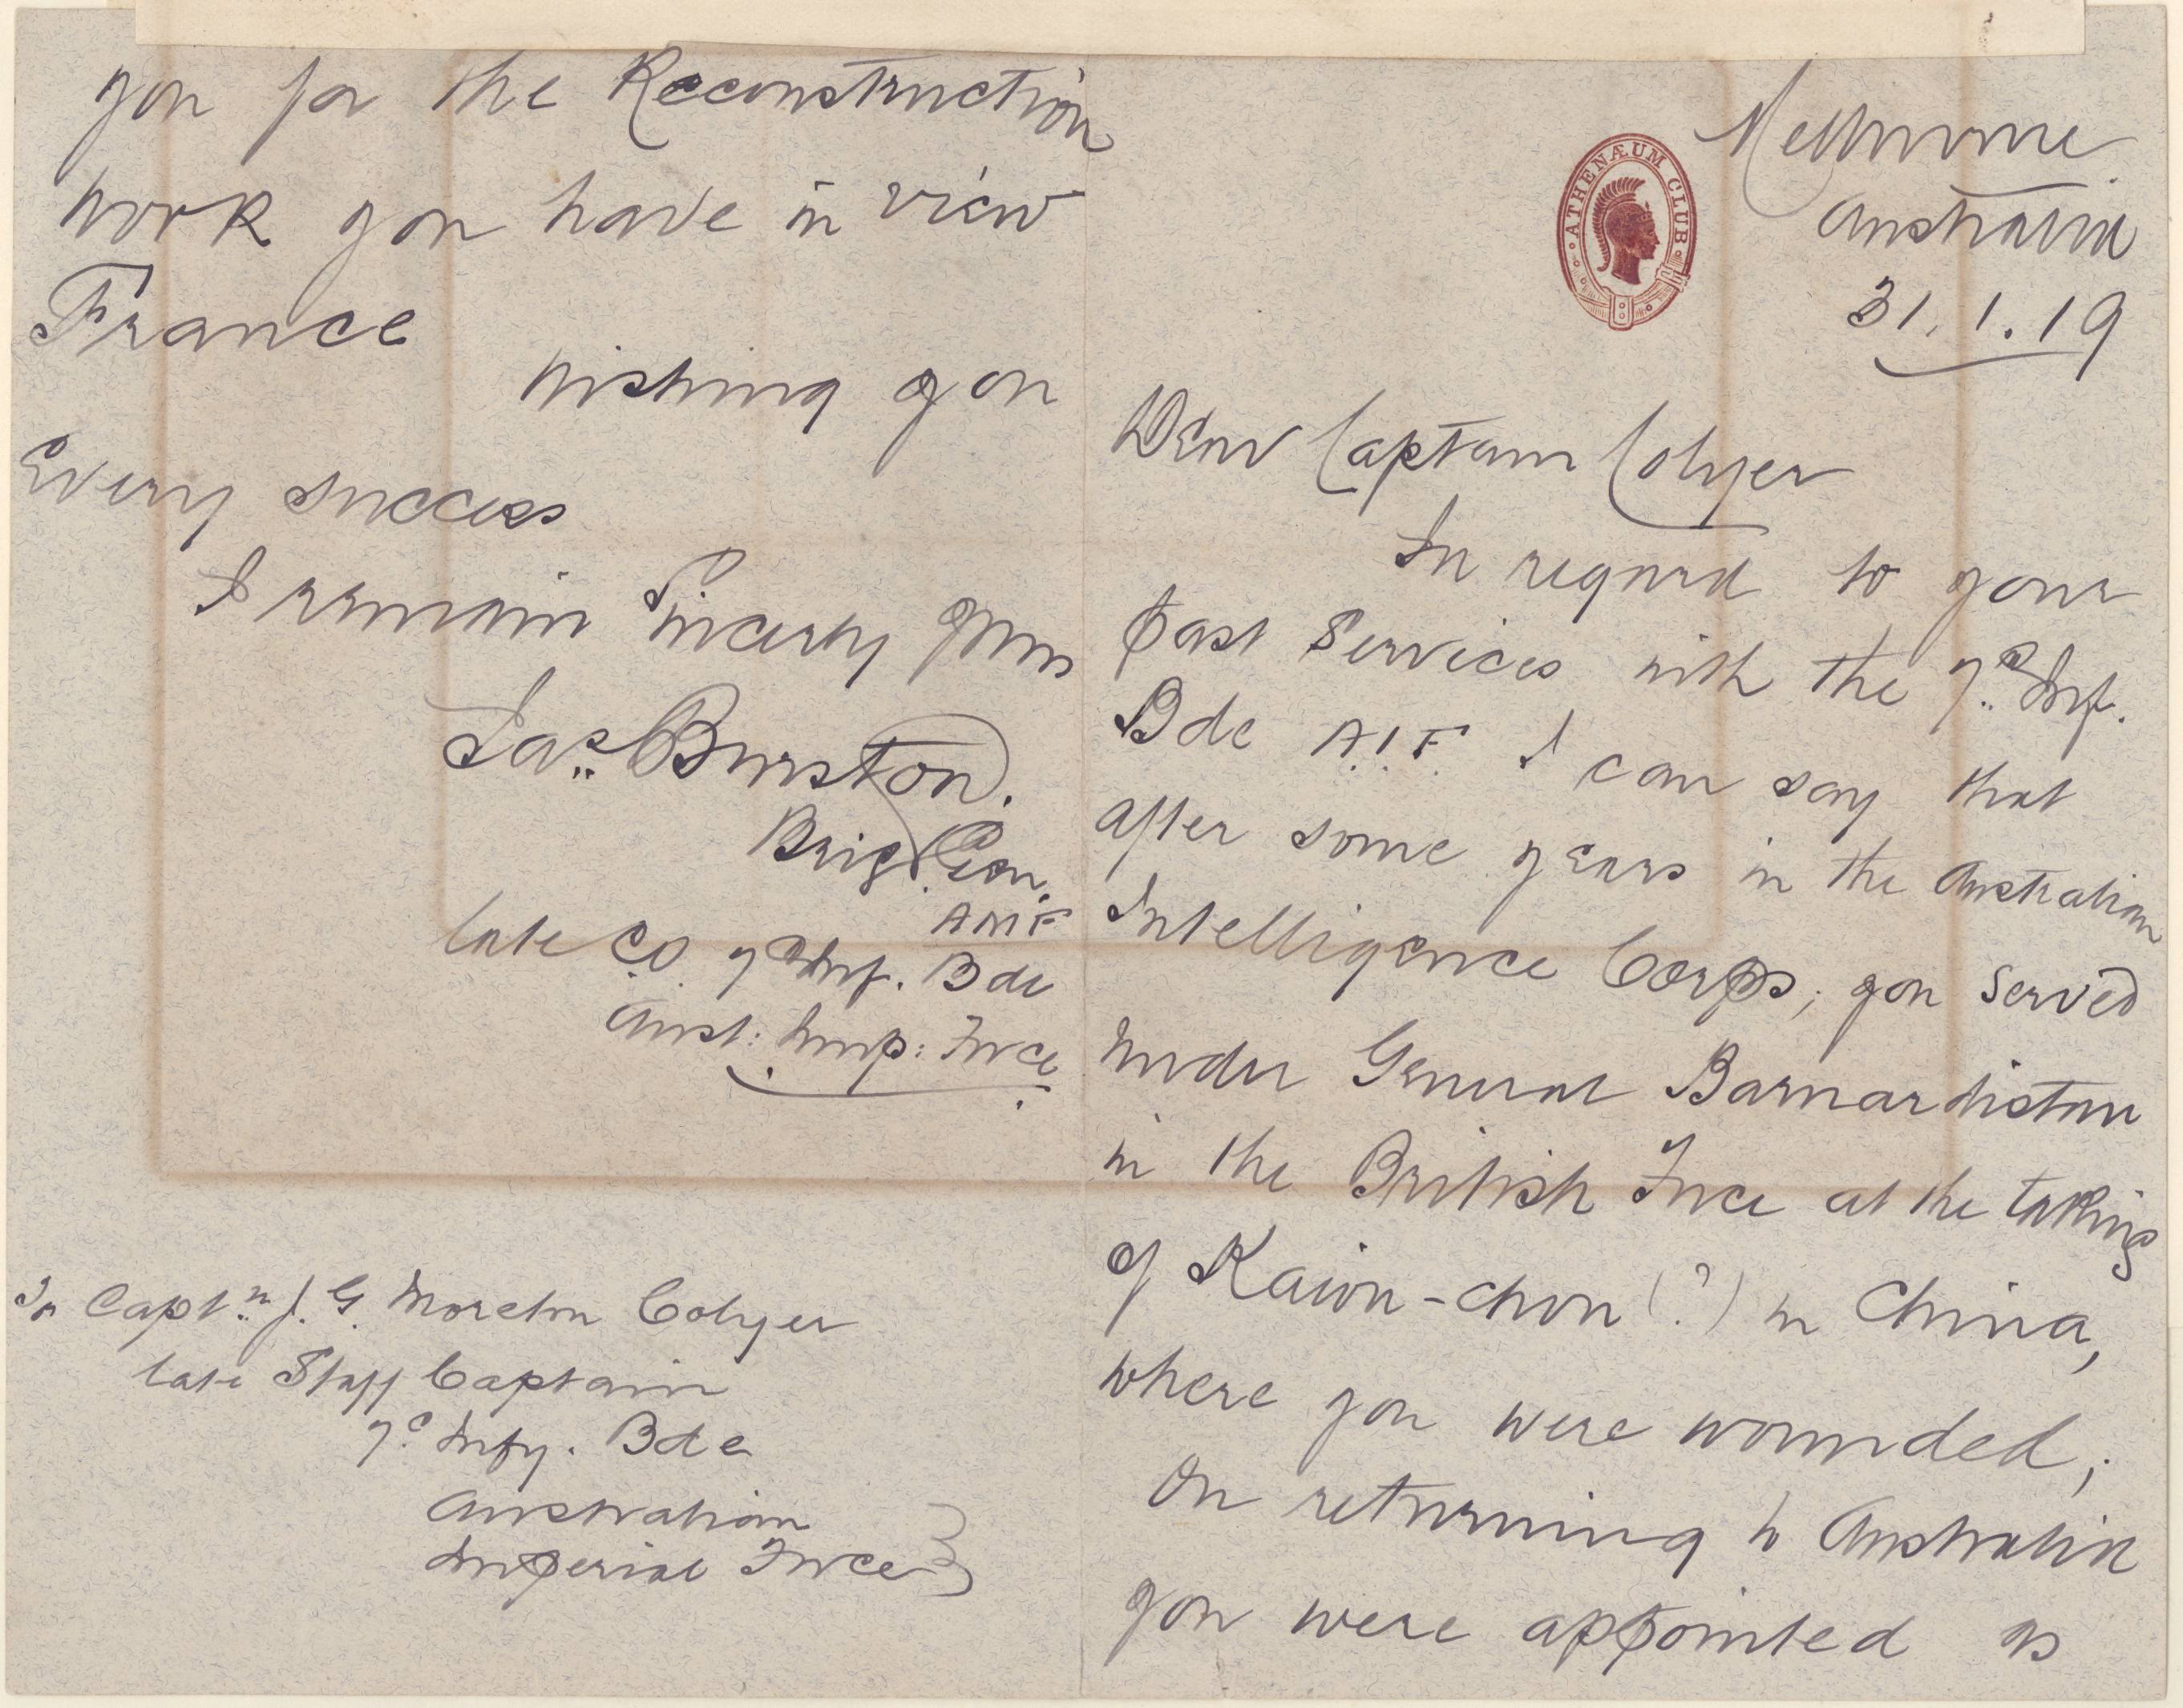 Melbourne
Australia
31.1.19
ATHENÆUM CLUB
Dear Captain Colyer
In regard to your
past services with the 7th Inf.
Bde A.I.F. I can say that
after some years in the Australian
Intelligence Corps; you served
under General Barnardiston
in the British Force at the taking
of Kaiou-chou (?) in China,
where you were wounded;
On returning to Australia
you were appointed as
you for the Reconstruction
work you have in view
France
Wishing you
Every success
I remain Sincerely yours
Jas. Burston.
Brig. Gen.
AMF
late CO 7th Inf. Bde
Aust: Imp: Force
To Captn. J. G. Moreton Colyer
late Staff Captain
7th Infy. Bde
Australian
Imperial Force